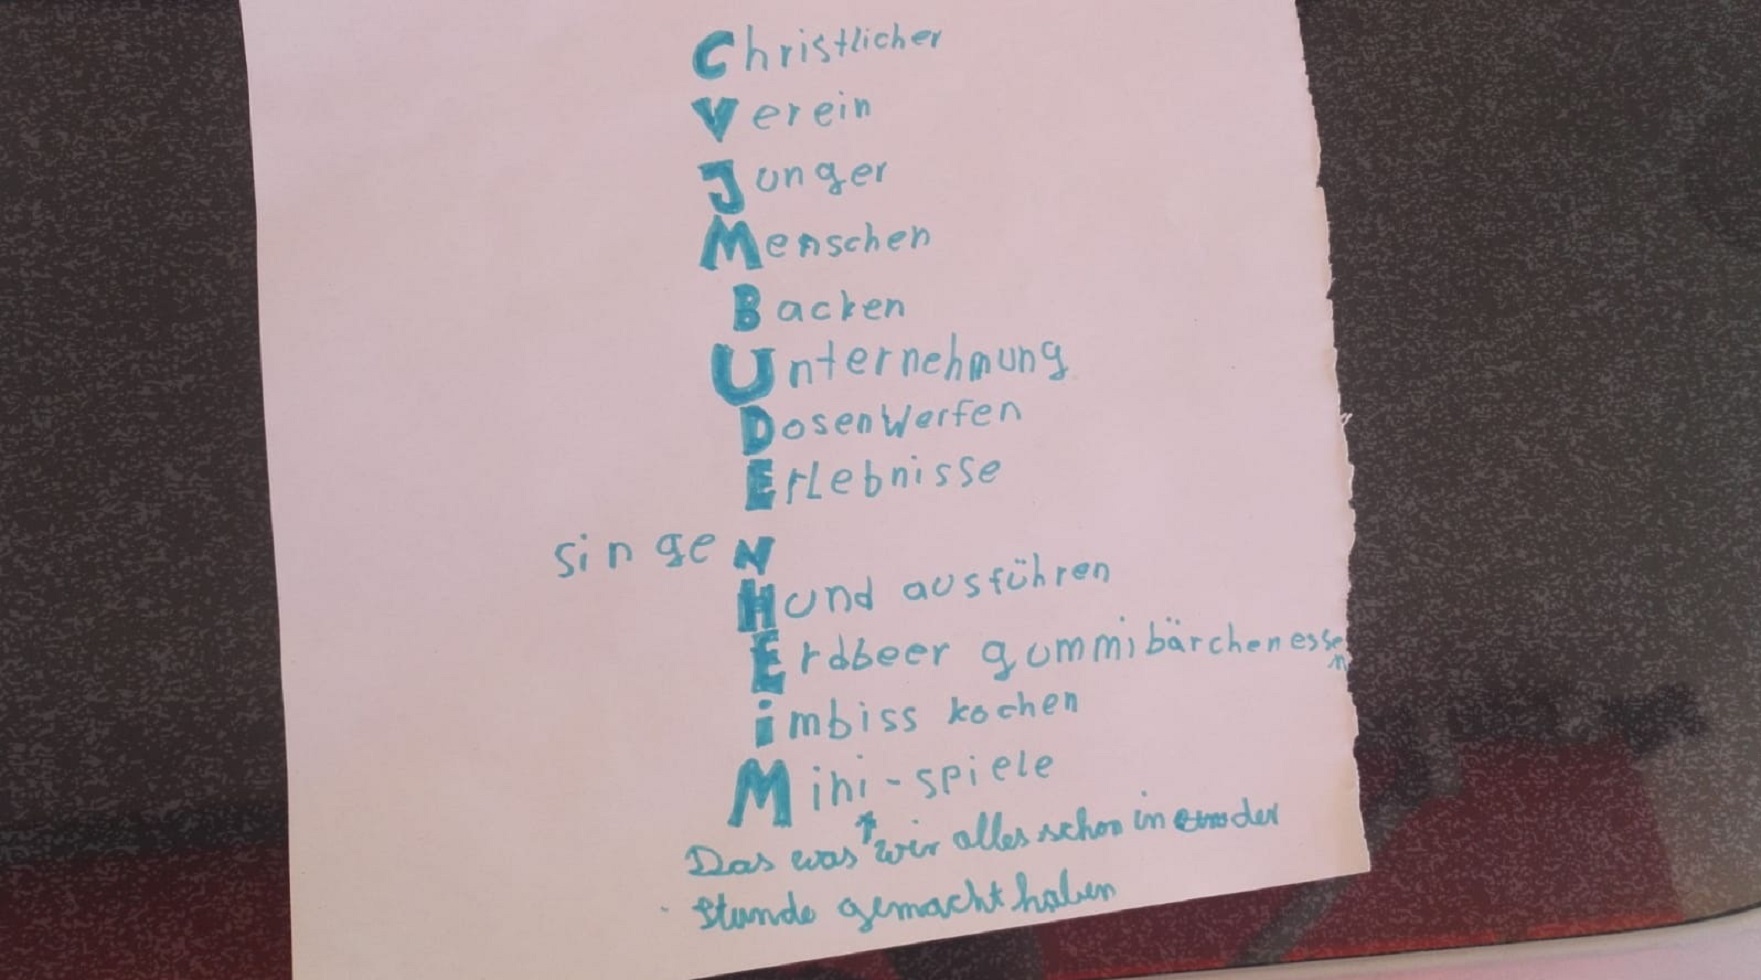 Christlicher
Verein
Junger
Menschen
Backen
Unternehmung
DosenWerfen
Erlebnisse
singeN
Hund ausführen
Erdbeer gummibärchenessen
imbiss kochen
Mini-spiele
Das was wir alles schon in der
stunde gemacht haben